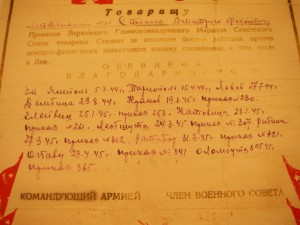 Товарищу
Приказом Верховного Главнокомандующего Маршала Советского
Союза товарища Сталина за отличные боевые действия против
немецко-фашистских захватчиков нашему соединению, в том числе
и Вам,
ОБЪЯВЛЕНА
БЛАГОДАРНОСТЬ
За Ямполь 5.3.44, Тернополь 15.4.44, Львов 27.7.44
Дембица 23.8.44, Краков 19.1.45, приказ 230.
Глейвиц 25.1.45, приказ 253, Катовице 28.1.45,
приказ 24.3.45 приказ № 307,
27.3.45, приказ №312, Ратибор 31.3.45, приказ №321,
Опаву 23.4.45, приказ № 341 Оломоуц 8.5.45,
Приказ 365.
КОМАНДУЮЩИЙ АРМИЕЙ ЧЛЕН ВОЕННОГО СОВЕТА